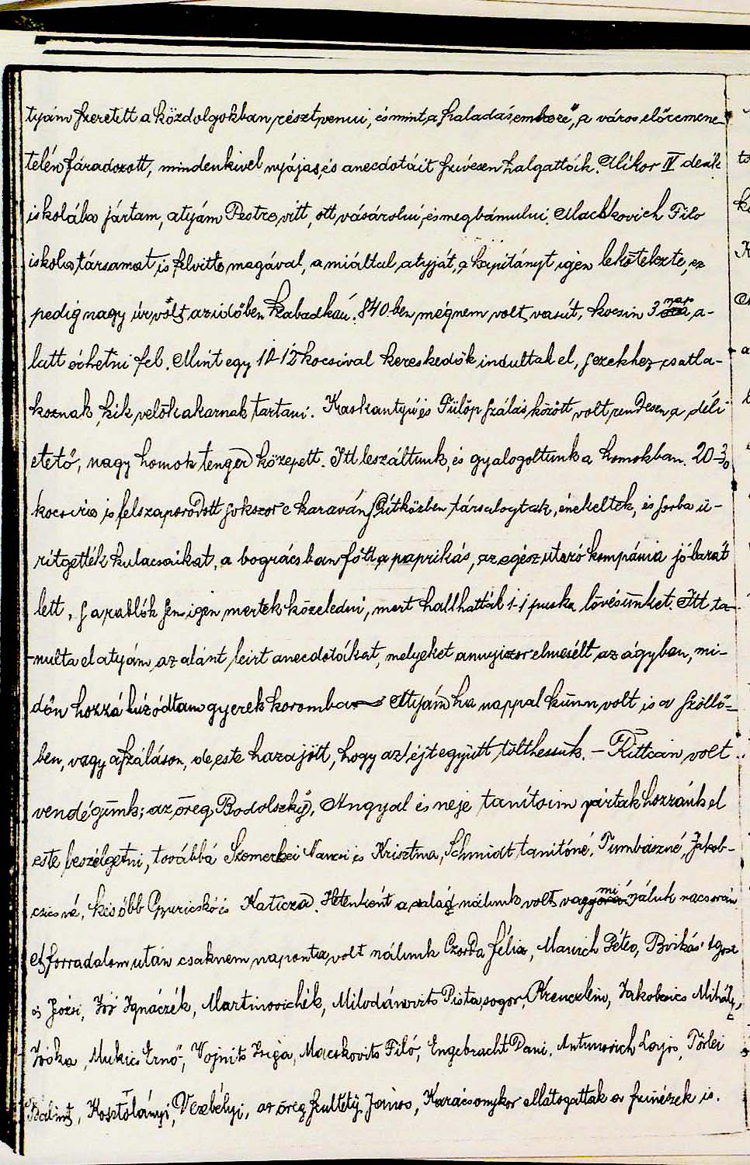 tyám szeretett a közdolgokban résztvenni, és mint a "haladás embere", a város előremene-
telén fáradozott, mindenkivel nyájas, és anecdotáit szivesen halgatták. Mikor IV deák
iskolába jártam, atyám Pestre vitt, ott vásárolni, és megbámulni. Mackovich Filo
iskolatársamat is felvitte magával, a miáltal atyját, a kapitányt igen lekötelezte, ez
pedig nagy úr volt az időben Szabadkán. 840-ben még nem volt vasút, kocsin 3 nap a-
latt érhetni fel. Mint egy 10-12 kocsival kereskedők indultak el, s ezekhez csatla-
koznak, kik velök akarnak tartani. Kaskantyú és Fülöp szálás között volt rendesen a déli
etető, nagy homok tenger közepett. Itt leszáltunk, és gyalogoltunk a homokban. 20-30
kocsira is felszaporodott sokszor e karaván. Útközben társalogtak, énekeltek, és sorba ü-
ritgették kulacsaikat, a bográcsban főtt a paprikás, az egész utazó kompánia jó barát
lett, s a rablók sem igen mertek közeledni, mert hallhatták 1-1 puska lövésünket. Itt ta-
nulta el atyám, az alánt leirt anecdotákat, melyeket annyiszor elmesélt az ágyban, mi-
dőn hozzá húzódtam gyerek koromba. Atyám ha nappal künn volt is a szöllő-
ben, vagy a száláson, de este hazajött, hogy az éjt együtt tölthessük. – Ritkán volt
vendégünk; az öreg Bodolszky, Angyal és neje tanítóim jártak hozzánk el
este beszélgetni, továbbá Szemerkei Nanni és Krisztina, Schmidt tanítóné, Tumbászné, Jakob-
csicsné, később Gyuricskó és Katicza. Hetenként a család nálunk volt vagy mi náluk vacsorán
A forradalom után csaknem naponta volt nálunk Czorda Félix, Manich Péter,
és Józsi, Joó Ignáczék, Martinovichék, Milodánovits Pista sogor, Krenczlein, Jakobcsics Mihály,
Jóska, Mukics Ernő, Vojnits Zsiga, Macskovits Filó, Engebracht Dani, Antunovich Lajos, Törlei
Bálint, Kosztolányi, Vezebélyi, az öreg Zsultéty János, Karácsonykor ellátogattak a szinészek is.